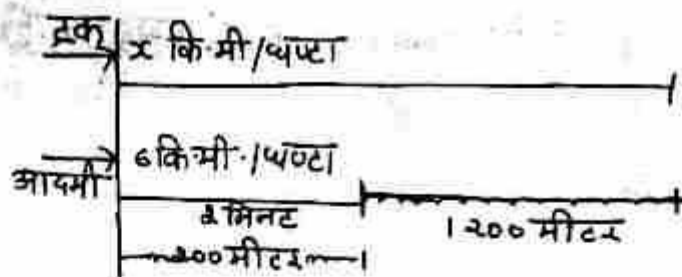 ट्रक
x कि.मी/घण्टा
6 कि.मी./घण्टा
आदमी
2 मिनट
1200 मीटर
200 मीटर